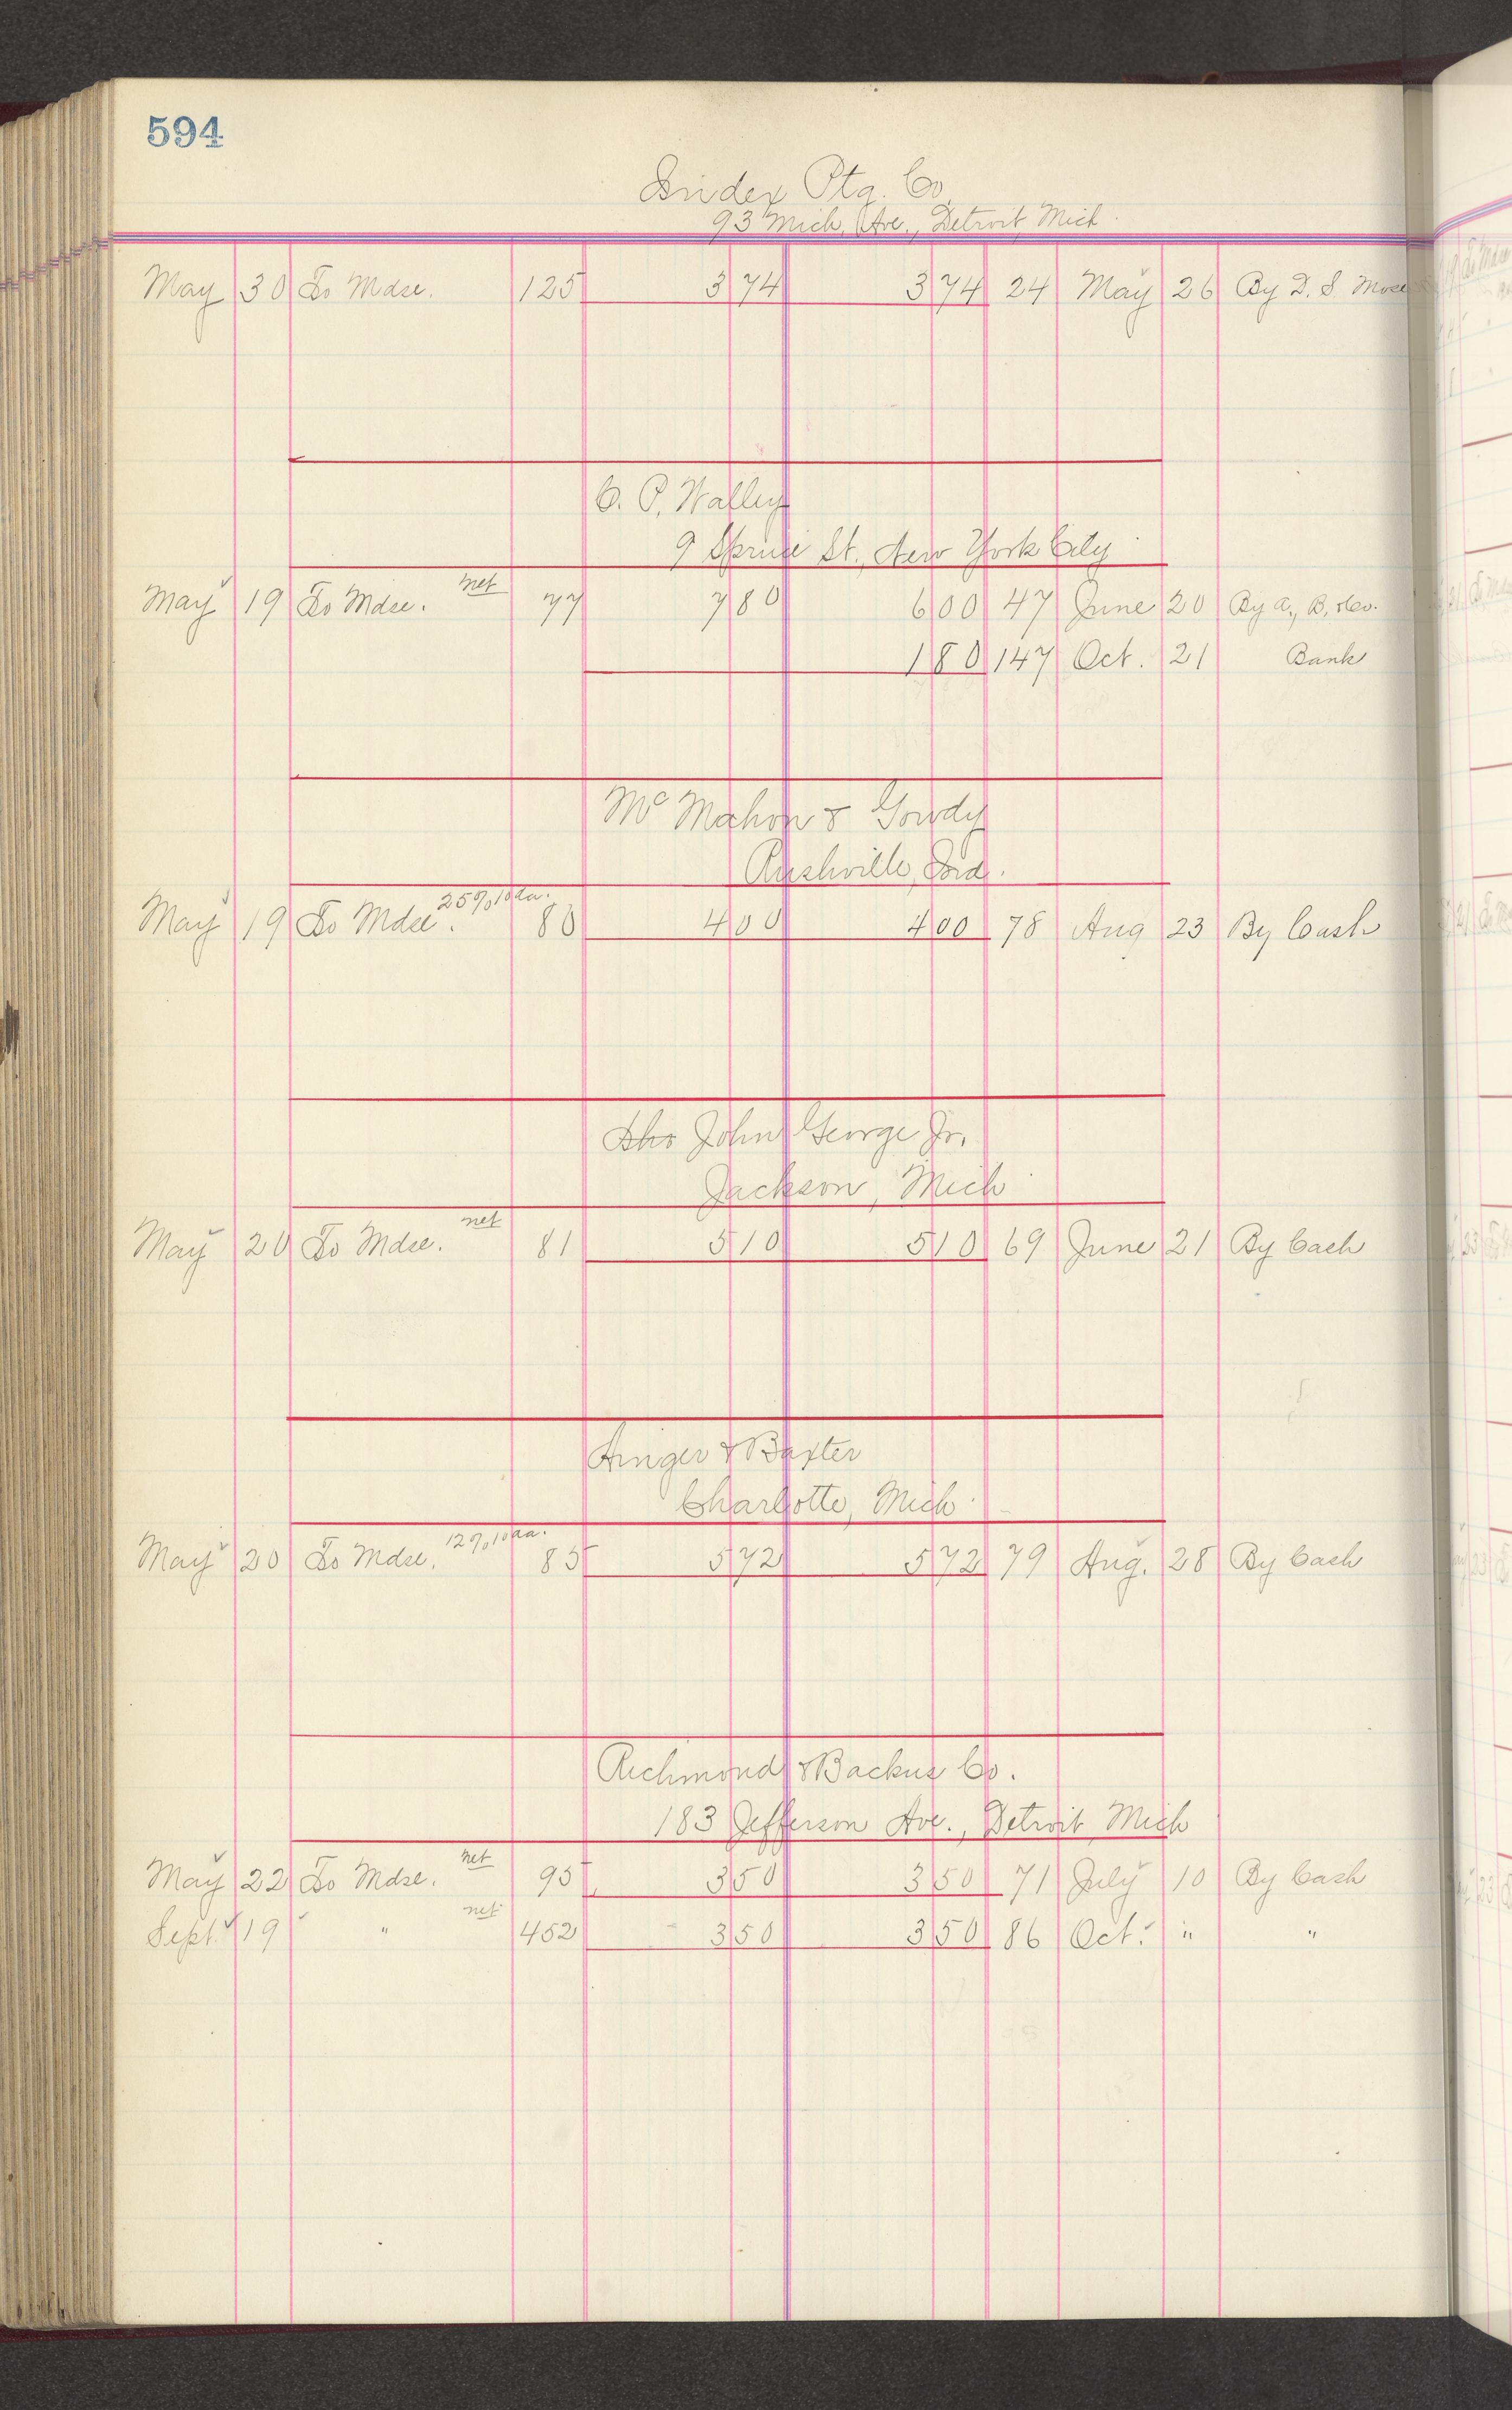 594
Index Ptg. Co.
93 Mich. Ave., Detroit, Mich.
May 30 To Mdse. 125 3 74 3 74 24 May 26 By D. S. Mdse
C. P. Walley
9 Spruce St., New York City
May 19 To Mdse. net 77 7 80 6 00 47 June 20 By A., B., &Co.
1 80 147 Oct. 21 Bank
McMahon & Gowdy
Rushville, Ind.
May 19 To Mdse. 25% 10 da. 80 4 00 4 00 78 Aug 23 By Cash
John George Jr.
Jackson, Mich
May 20 To Mdse. net 81 5 10 5 10 69 June 21 By Cash
& Baxter
Charlotte, Mich.
May 20 To Mdse. 12% 10 da. 85 5 72 5 72 79 Aug. 28 By Cash
Richmond & Backus Co.
183 Jefferson Ave., Detroit, Mich
May 22 To Mdse. net 95 3 50 3 50 71 July 10 By Cash
Sept. 19 " net 452 3 50 3 50 86 Oct. " "